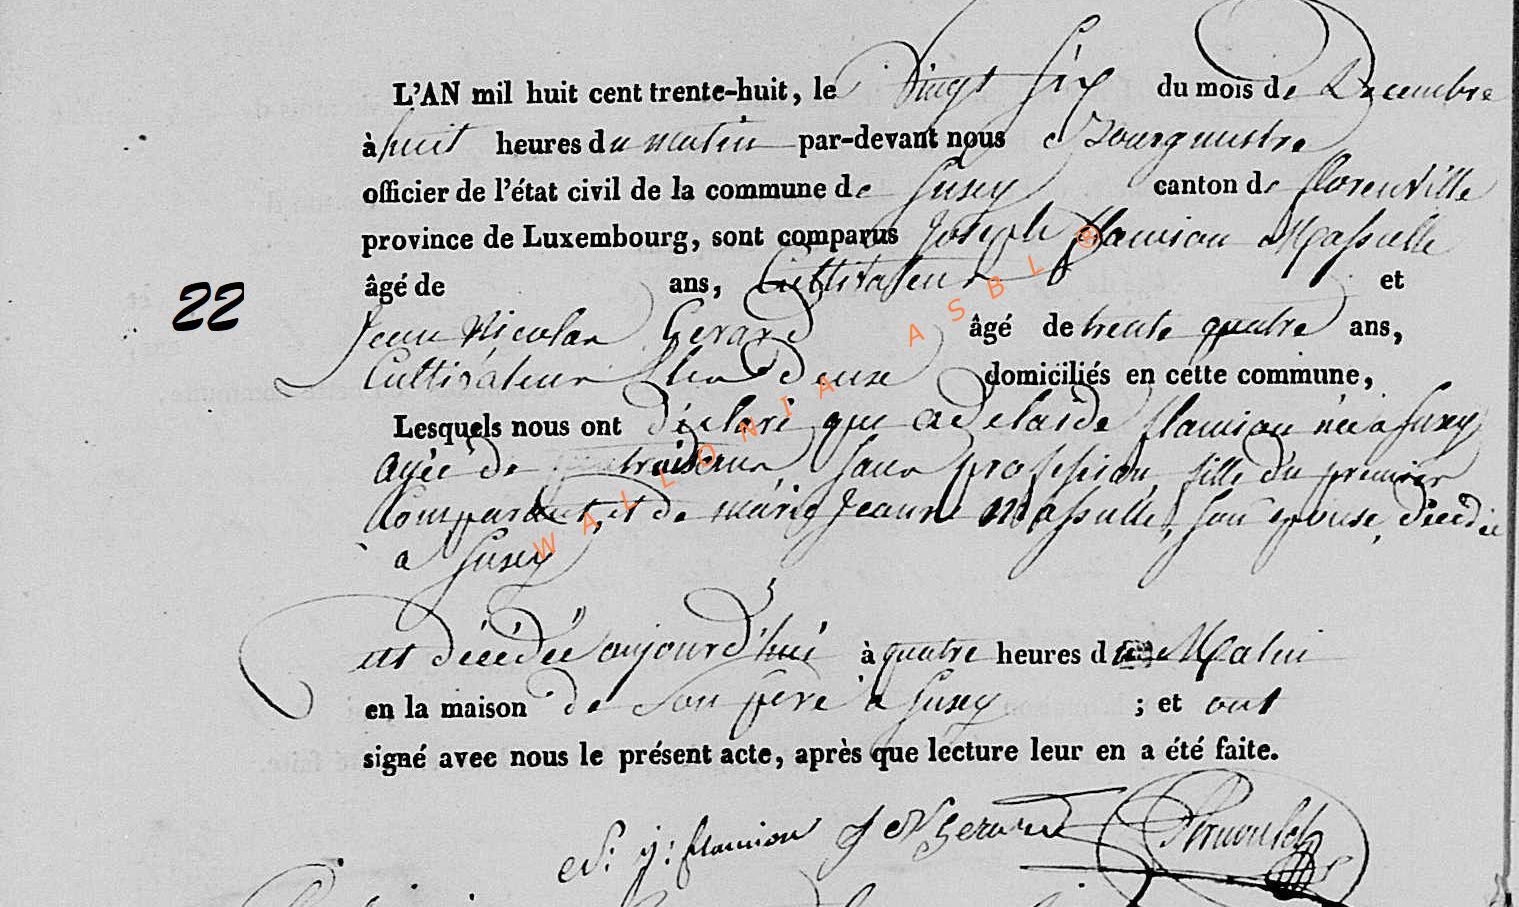 L'AN mil huit cent trente-huit, le Vingt Six du mois de Decembre
à huit heures du matin par-devant nous Bourgmestre
officier de l'état civil de la commune de Suxy canton de florenville
province de Luxembourg, sont comparus Joseph flamion Massulle
âgé de ans, Cultivateur et
22
Jean Nicolas Gerard âgé de trente quatre ans,
Cultivateur deux domiciliés en cette commune,
Lesquels nous ont déclaré que adelaide flamion née a Suxy
agée de trois sans profession, fille du premier
Comparant, et de marie Jeanne Massulle, son epouse, décédée
a Suxy
est décédée aujourd'hui à quatre heures du Matin
en la maison de Son pere a Suxy ; et ont
signé avec nous le présent acte, après que lecture leur en a été faite.
j: flamion J N Gerard
WALLONIA ASBL ®